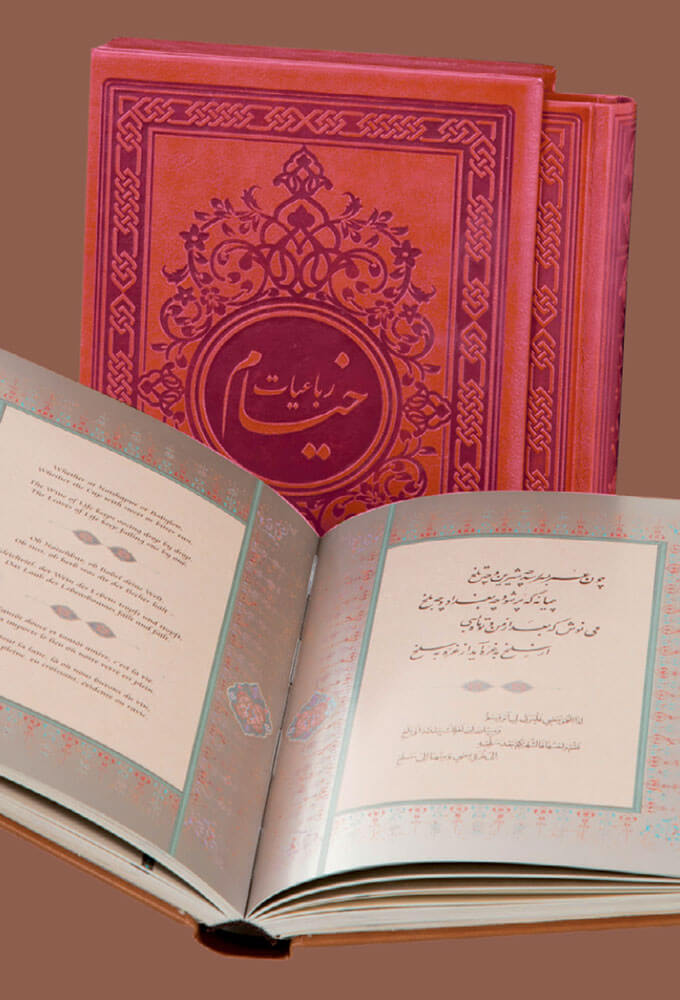 رباعیات
خیام
Whether at Naishápúr or Babylon,
Whether the Cup with sweet or bitter run,
The Wine of Life keeps oozing drop by drop,
The Leaves of Life keep falling one by one.
Ob Naischapur, ob Babel deine Welt,
Ob süß, ob herb was dir der Becher hält
gleichviel, der Wein des Lebens tropft und tropft,
Das Laub des Lebensbaumes fällt und fällt.
tantôt douce et tantôt amère, c'est la vie
importe le lieu où notre verre en plein,
pour la lune, là où nous buvons du vin,
pleine, en croissant, évidente ou ravie
چون عمر بسر رسد چه شیرین و چه تلخ
پیمانه که پر شود چه بغداد و چه بلخ
می نوش که بعد از من و تو ماه بسی
از سلخ به غره آید از غره به سلخ